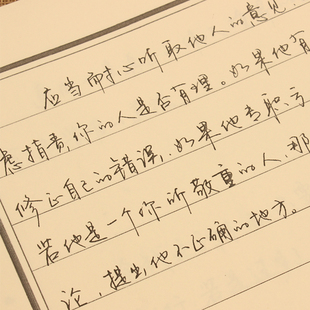 应当耐心听取他人的意见,
虑指责你的人是否有理。如果他有
修正自己的错误,如果他
若他是一个你所敬重的人,那
论,提出他不正确的地方。